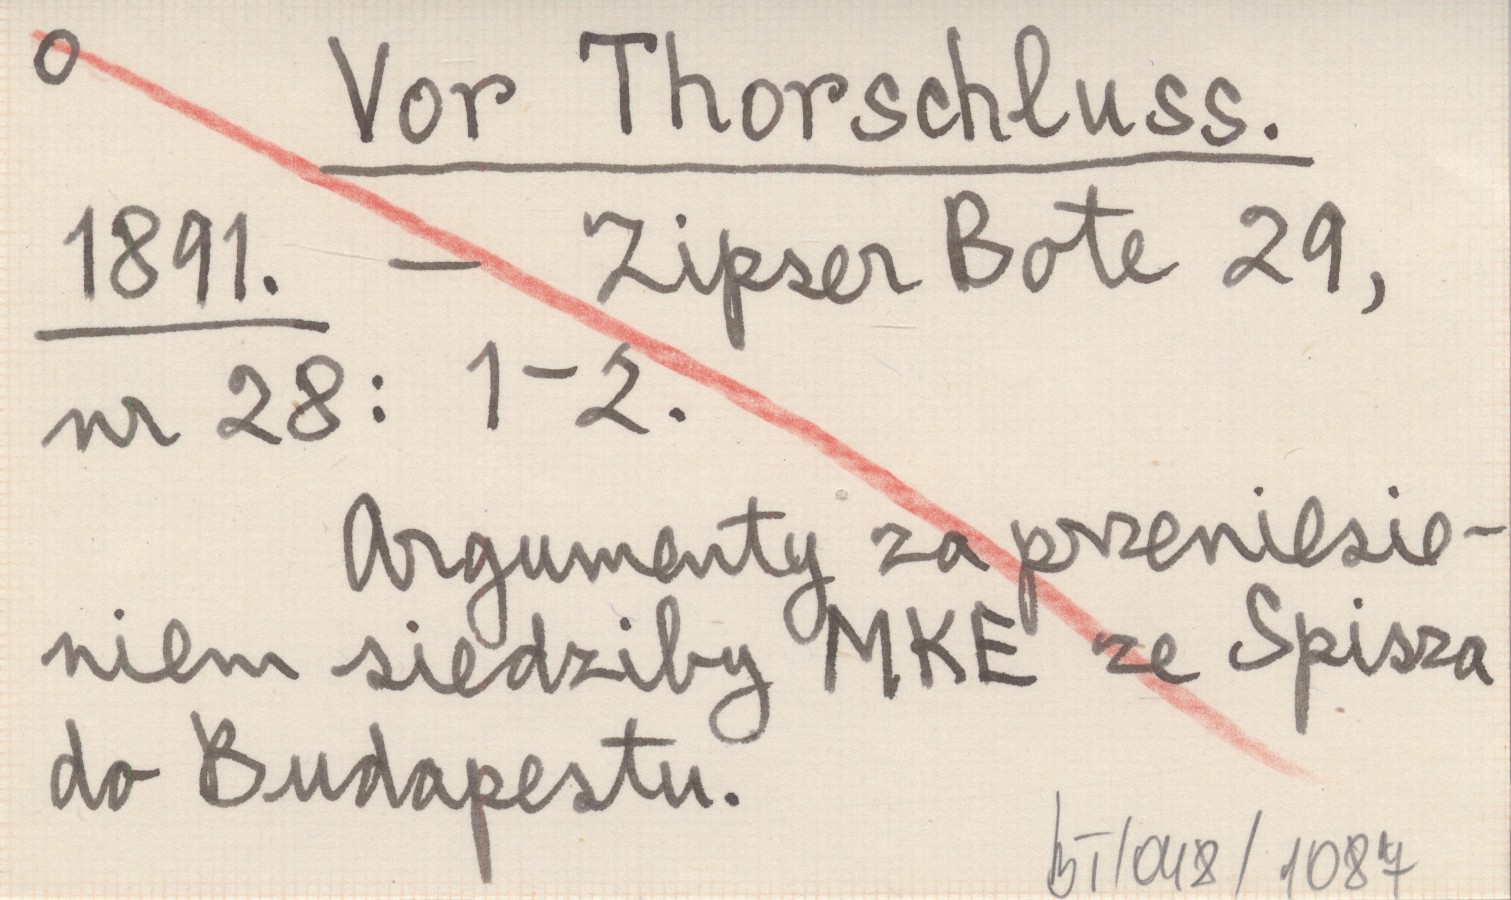 o Vor Thorschluss.
1891. – Zipser Bote 29,
nr 28: 1-2.
Argumenty za przeniesie-
niem siedziby MKE ze Spisza
do Budapestu.
bT/048/1087